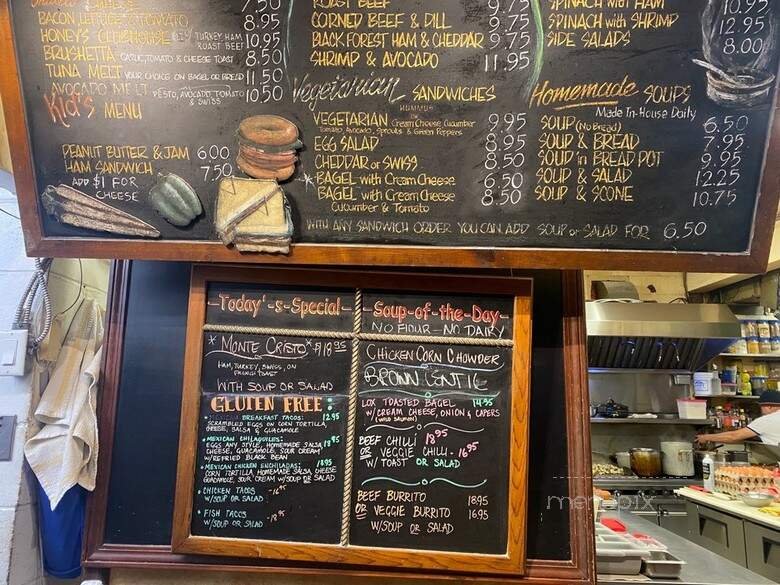 7.50
BACON, LETTUCE & TOMATO 8.95
HONEY'S CLUBHOUSE TURKEY, HAM 10.95
ROAST BEEF
BRUSHETTA GARLIC, TOMATO & CHEESE TOAST 8.50
TUNA MELT YOUR CHOICE ON BAGEL OR BREAD 11.50
AVOCADO MELT PESTO, AVOCADO, TOMATO 10.50
& SWISS
Kid's MENU
PEANUT BUTTER & JAM 6.00
HAM SANDWICH 7.50
ADD $1 FOR
CHEESE
ROAST BEEF 9.75
CORNED BEEF & DILL 9.75
BLACK FOREST HAM & CHEDDAR 9.75
SHRIMP & AVOCADO 11.95
Vegetarian SANDWICHES
HUMMUS
VEGETARIAN Cream Cheese, Cucumber 9.95
Tomato, Avocado, Sprouts & Green Peppers
EGG SALAD 8.95
CHEDDAR or SWISS 8.50
*BAGEL with Cream Cheese 6.50
BAGEL with Cream Cheese 8.50
Cucumber & Tomato
WITH ANY SANDWICH ORDER YOU CAN ADD SOUP or SALAD FOR 6.50
SPINACH with HAM 10.95
SPINACH with SHRIMP 12.95
SIDE SALADS 8.00
Homemade SOUPS
Made In-House Daily
SOUP (No Bread) 6.50
SOUP & BREAD 7.95
SOUP in BREAD POT 9.95
SOUP & SALAD 12.25
SOUP & SCONE 10.75
-Today'-s-Special-
* MONTE CRISTO * $18.95
HAM, TURKEY, SWISS, ON
FRENCH TOAST
WITH SOUP OR SALAD
GLUTEN FREE:
* MEXICAN BREAKFAST TACOS: 12.95
SCRAMBLED EGGS ON CORN TORTILLA,
CHEESE, SALSA & GUACAMOLE
* MEXICAN CHILAQUILES: 18.95
EGGS ANY STYLE, HOMEMADE SALSA,
CHEESE, GUACAMOLE, SOUR CREAM
W/REFRIED BLACK BEAN
* MEXICAN CHICKEN ENCHILADAS: 18.95
CORN TORTILLA, HOMEMADE SALSA, CHEESE
GUACAMOLE, SOUR CREAM W/SOUP OR SALAD
* CHICKEN TACOS -16.95
W/SOUP OR SALAD
* FISH TACOS
W/SOUP OR SALAD -18.95
Soup-of-the-Day-
NO FLOUR - NO DAIRY
CHICKEN CORN CHOWDER
BROWN LENTIL
LOX TOASTED BAGEL 14.95
W/CREAM CHEESE, ONION & CAPERS
(WILD SALMON)
BEEF CHILLI 18.95
OR VEGGIE CHILLI - 16.95
W/ TOAST OR SALAD
BEEF BURRITO 18.95
OR VEGGIE BURRITO 16.95
W/SOUP OR SALAD
menupix